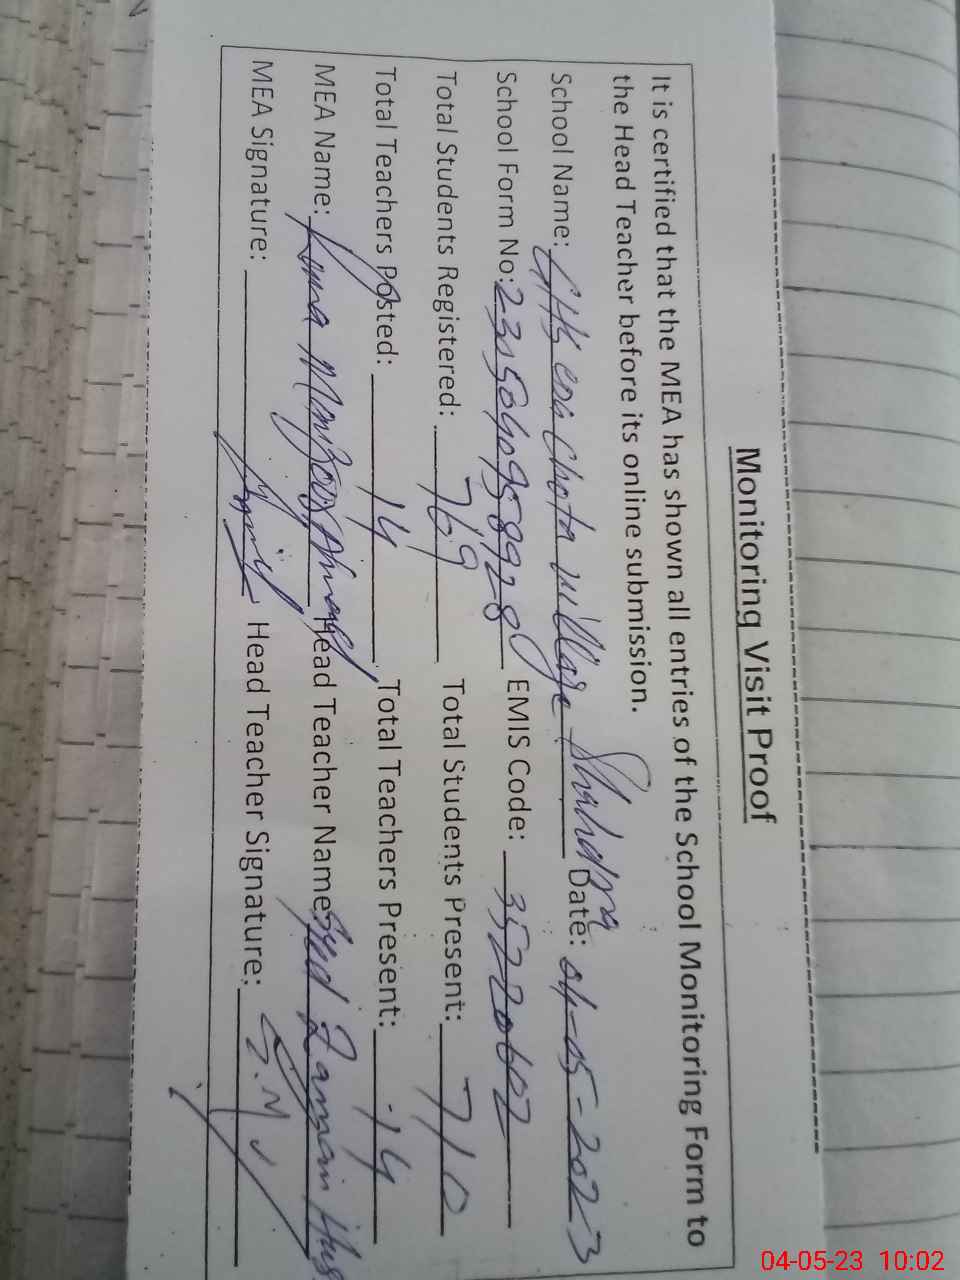 Monitoring Visit Proof
It is certified that the MEA has shown all entries of the School Monitoring Form to
the Head Teacher before its online submission.
School Name: Chota village Shahdara Date: 04-05-2023
School Form No: EMIS Code:
Total Students Registered: 769 Total Students Present: 710
Total Teachers Posted: 14 Total Teachers Present: 14
MEA Name: Rana Ahmad Head Teacher Name: Syed Zamain
MEA Signature: Head Teacher Signature:
04-05-23 10:02